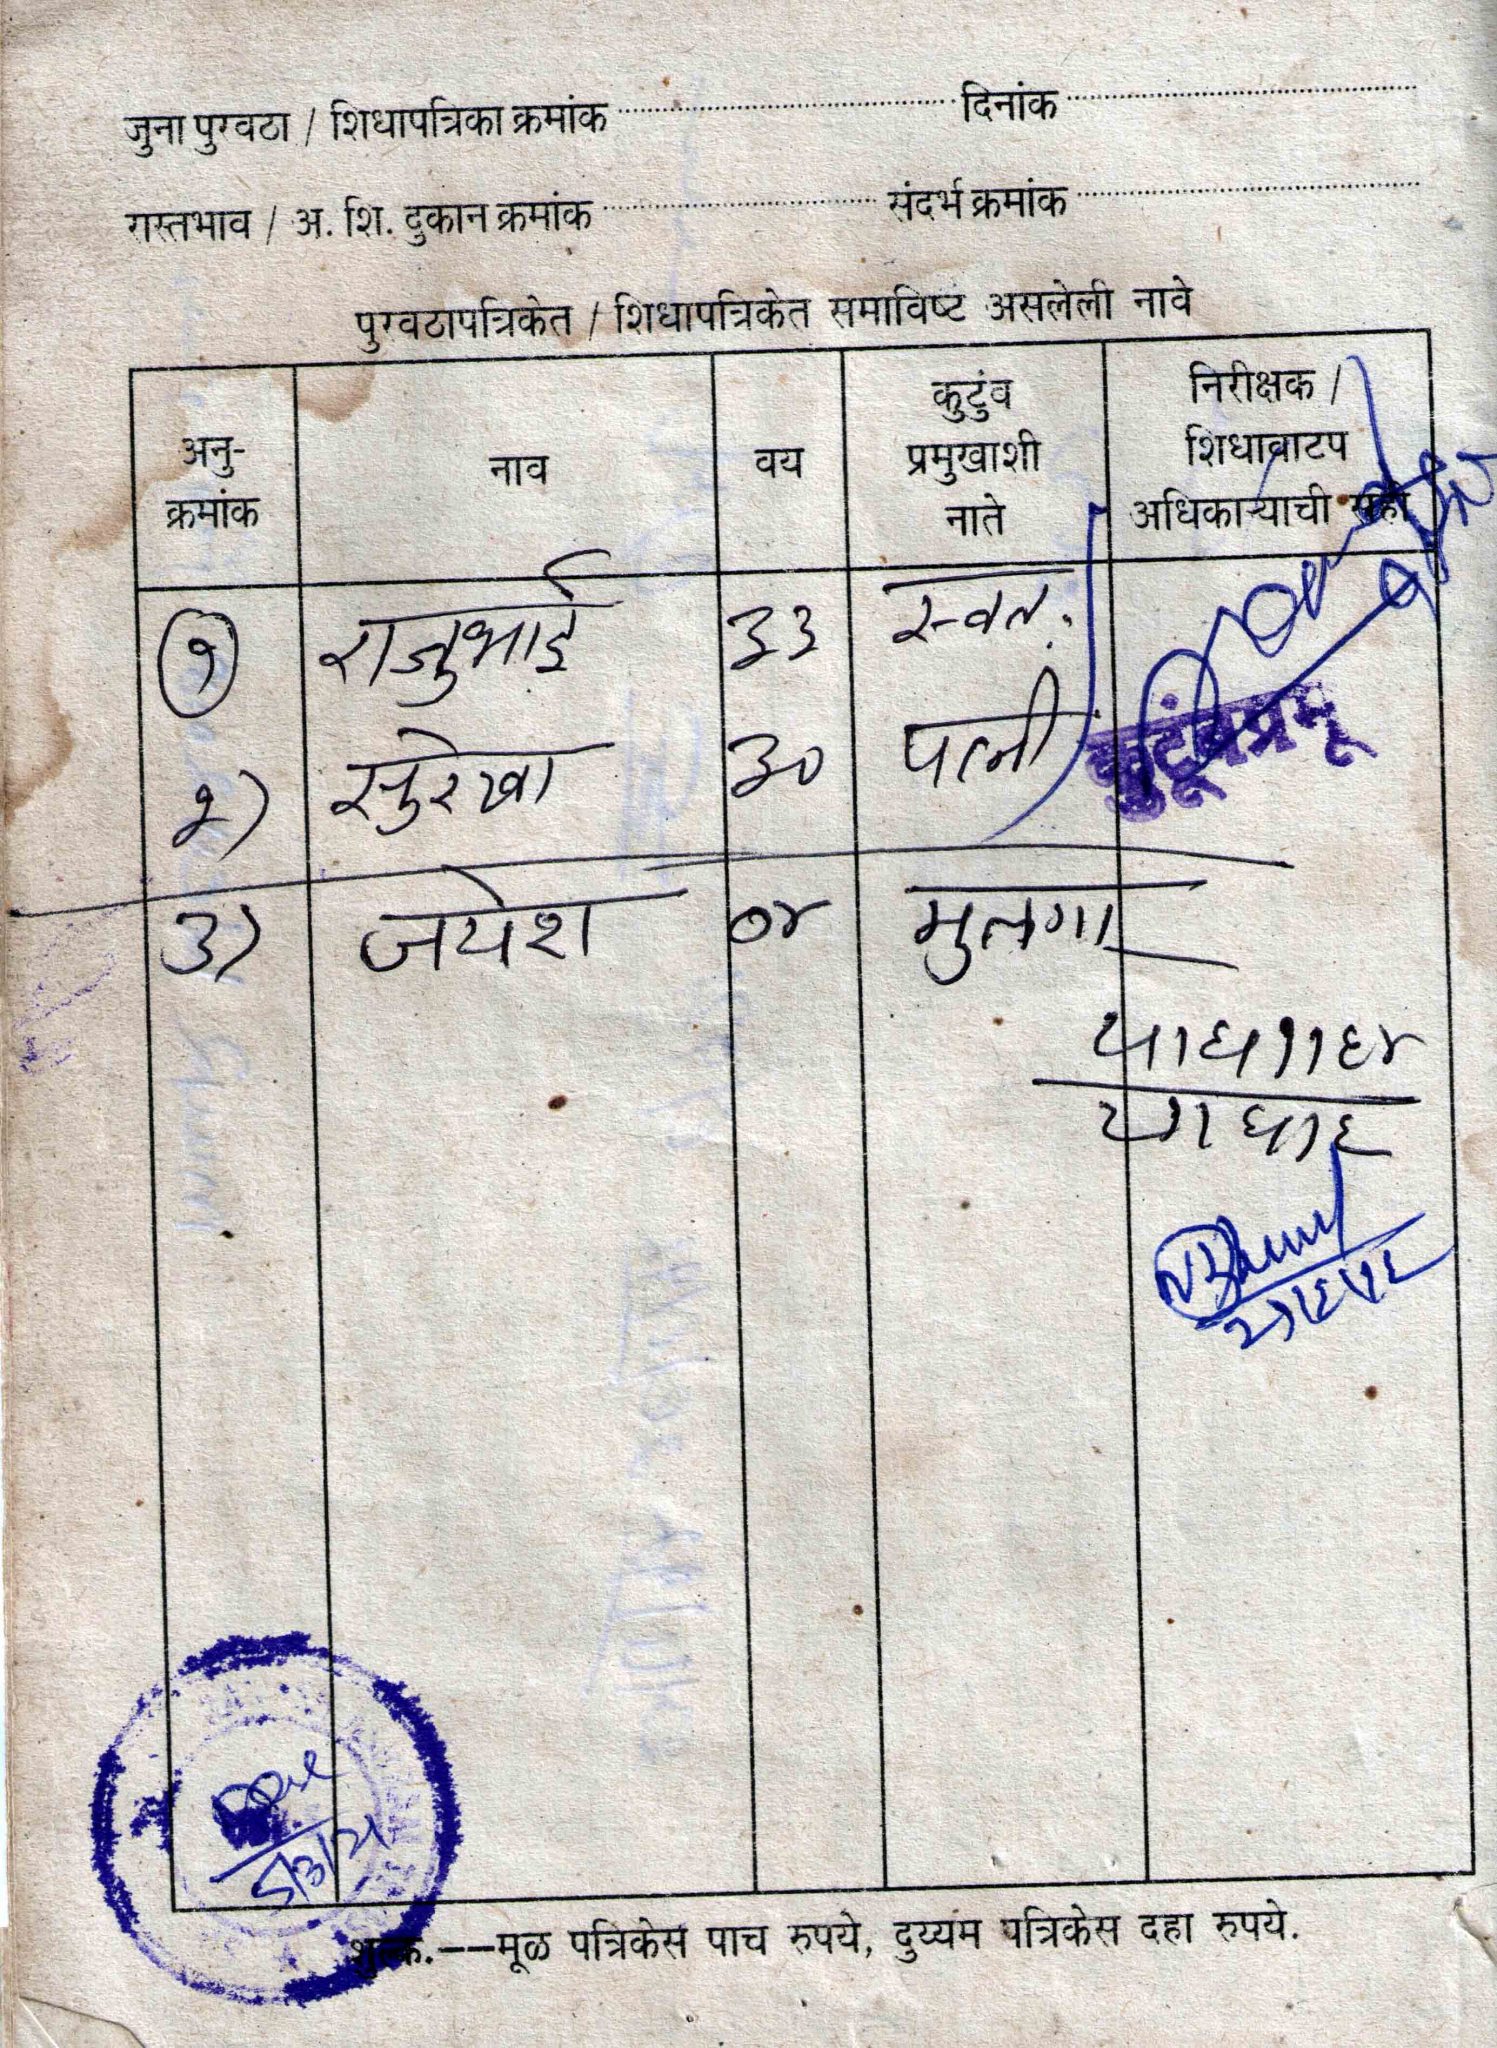 जुना पुरवठा / शिधापत्रिका क्रमांक ........................ दिनांक ........................
रास्तभाव / अ. शि. दुकान क्रमांक ........................ संदर्भ क्रमांक ........................
पुरवठापत्रिकेत / शिधापत्रिकेत समाविष्ट असलेली नावे
अनु-
क्रमांक
नाव
वय
कुटुंब
प्रमुखाशी
नाते
निरीक्षक /
शिधावाटप
अधिकाऱ्याची सही
१ राजुभाई ३३ स्वत:
२) सुरेखा ३० पत्नी
कुटूंबप्रमू
३) जयेश ०४ मुलगा
शुल्क.——मूळ पत्रिकेस पाच रुपये, दुय्यम पत्रिकेस दहा रुपये.